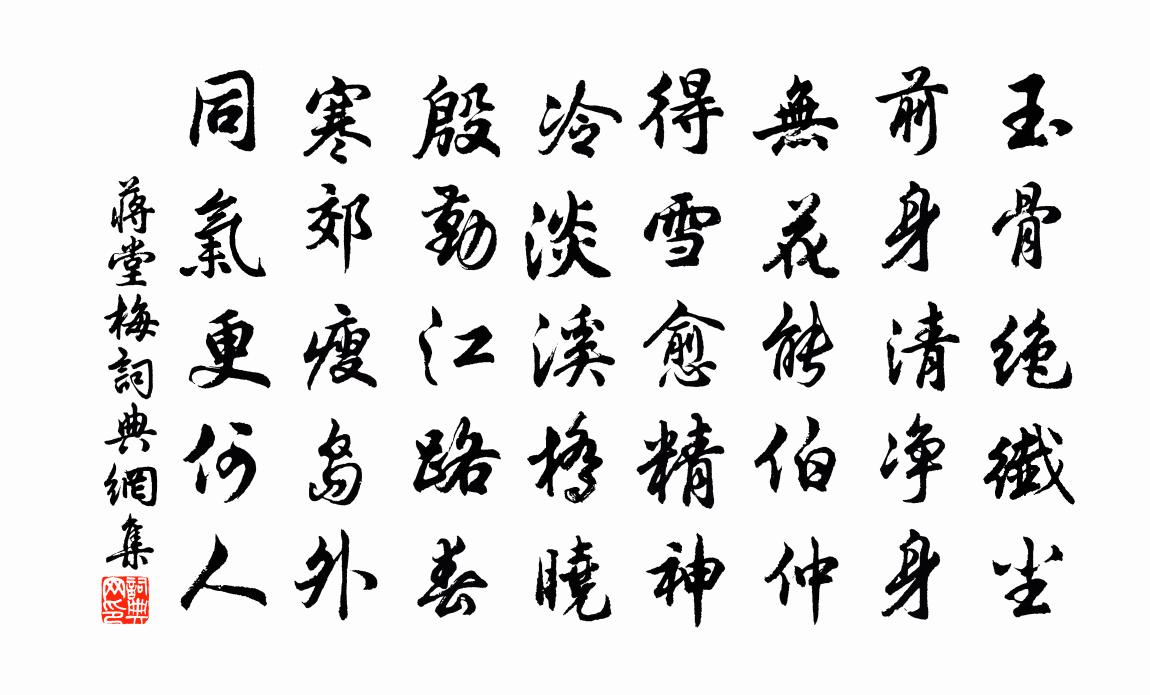 玉骨絶纖尘
前身清净身
無花能伯仲
得雪愈精神
冷淡溪橋曉
殷勤江路春
寒郊瘦島外
同氣更何人
蒋堂梅詞典網集
詞典网印